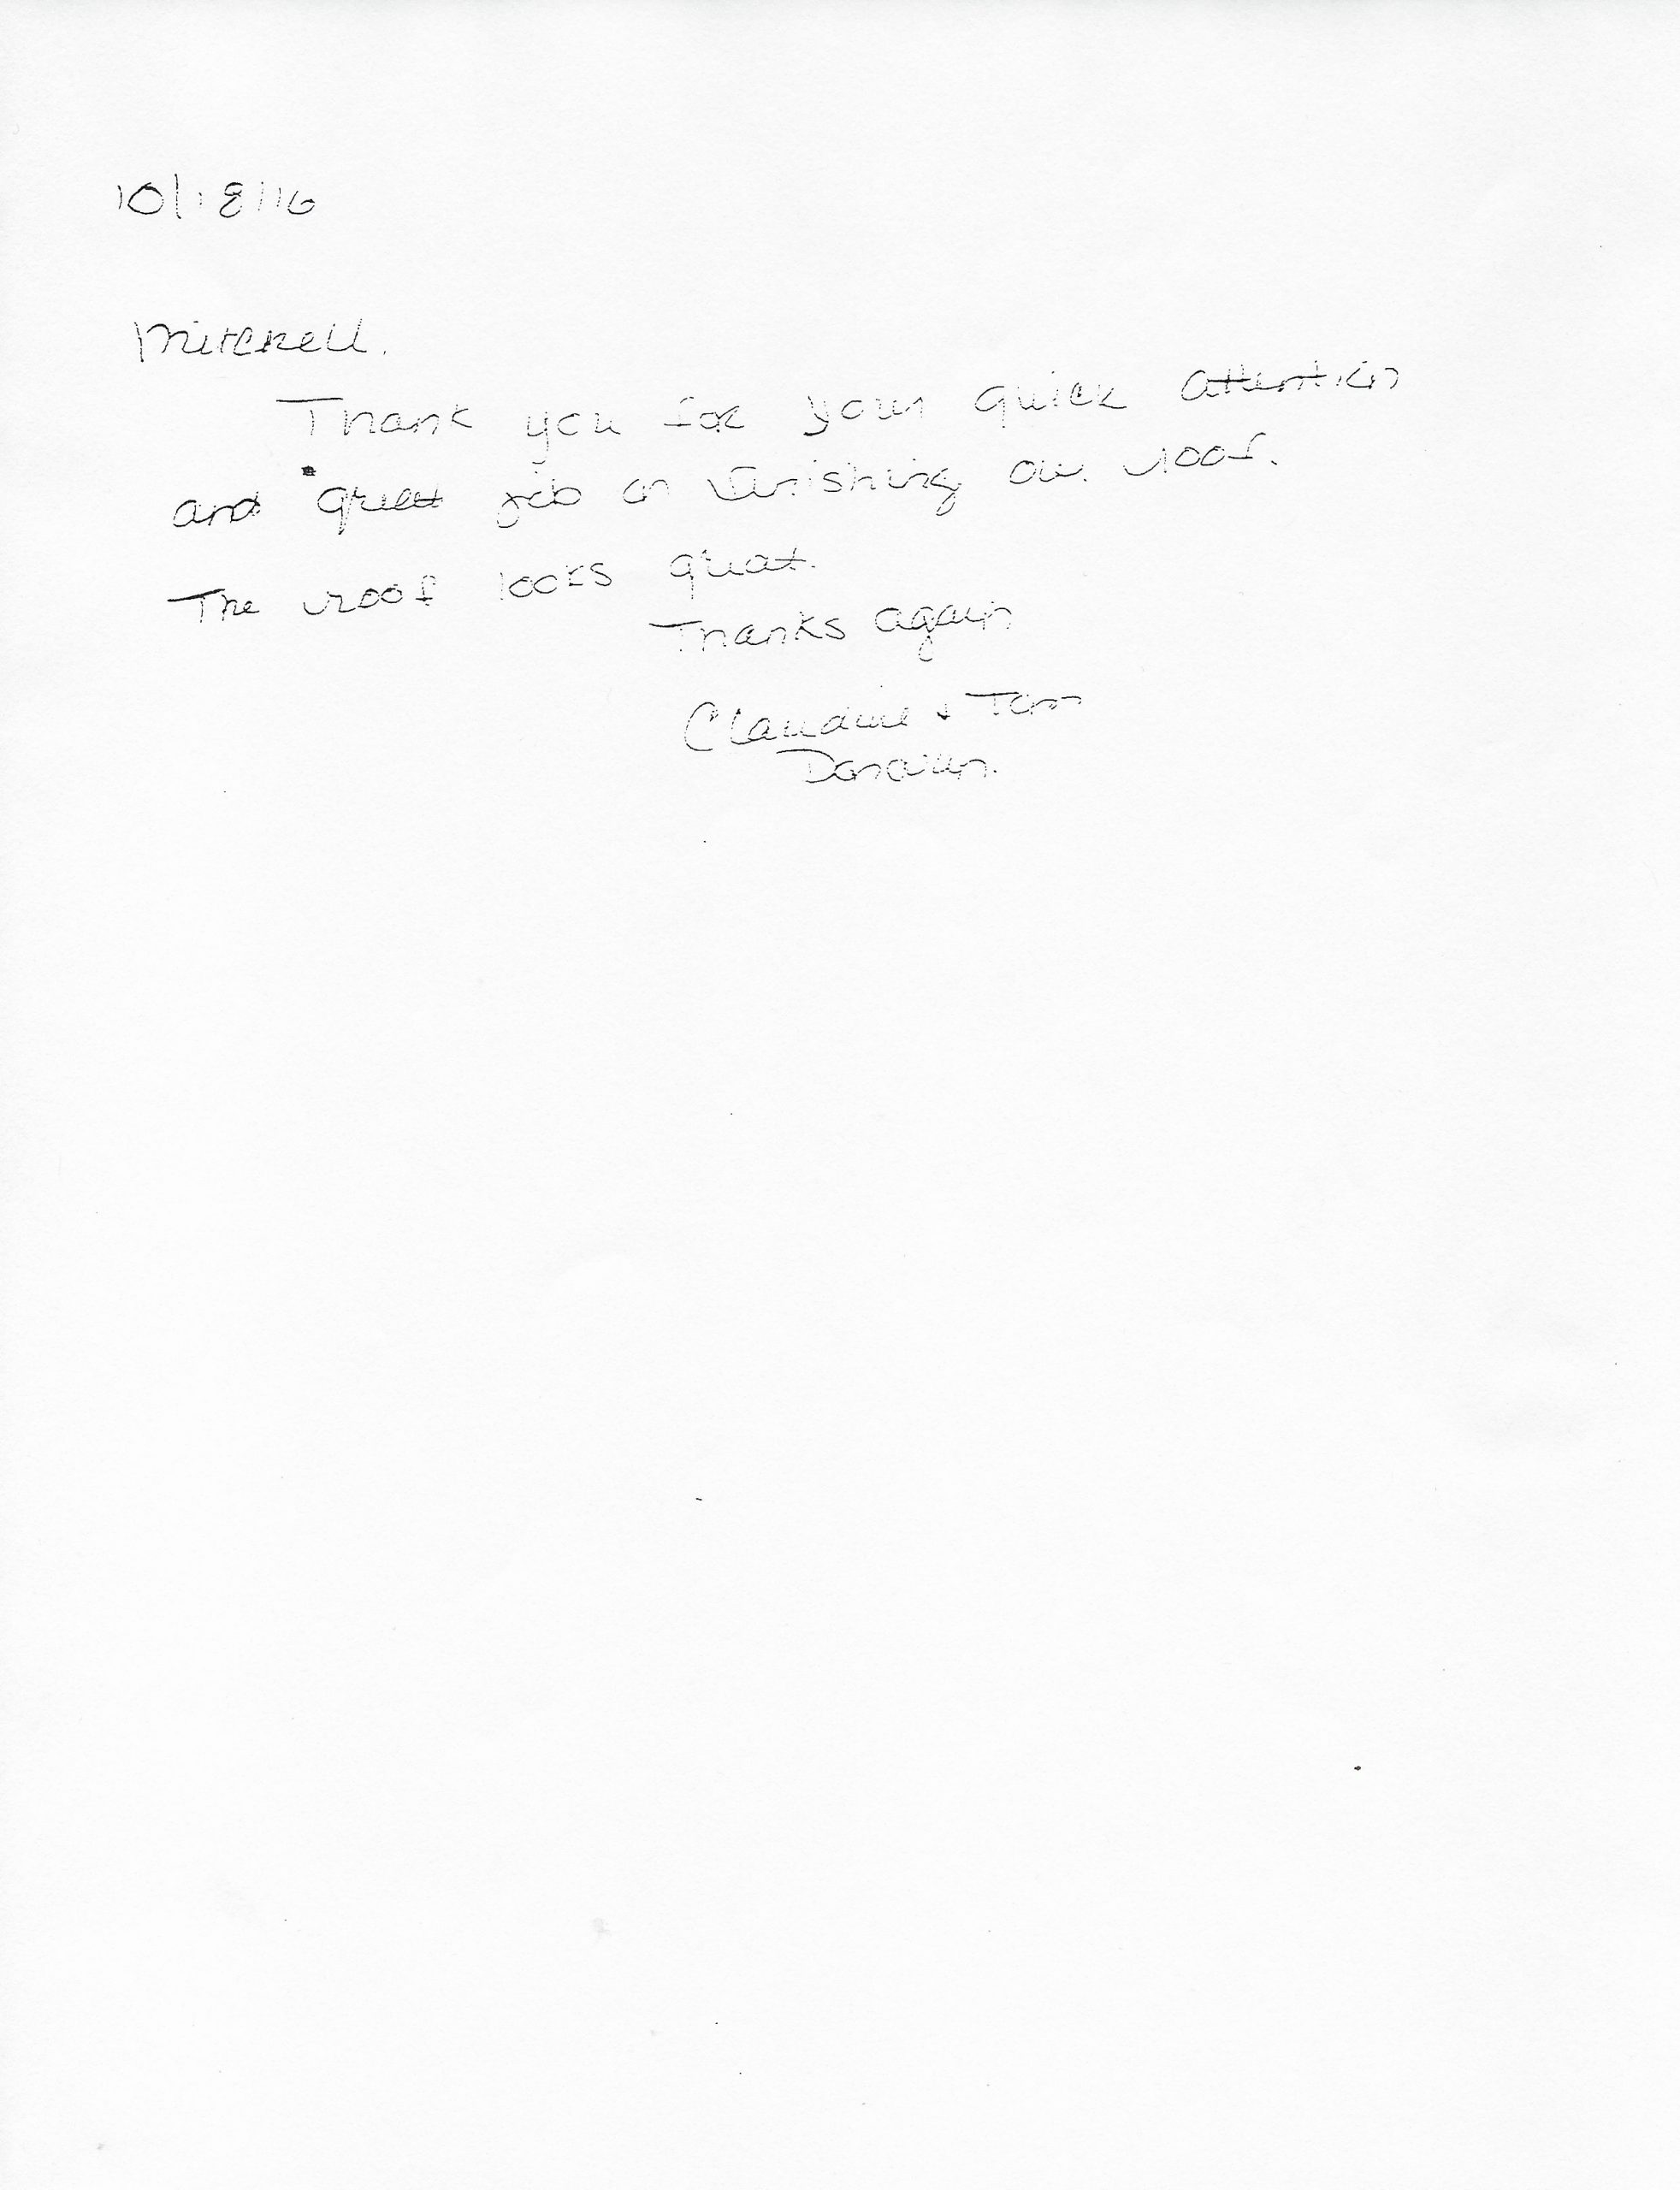 10/18/16
Mitchell.
Thank you for your quick attention
and great job on finishing our roof.
The roof looks great.
Thanks again
Claudine + Tom
Donovan.